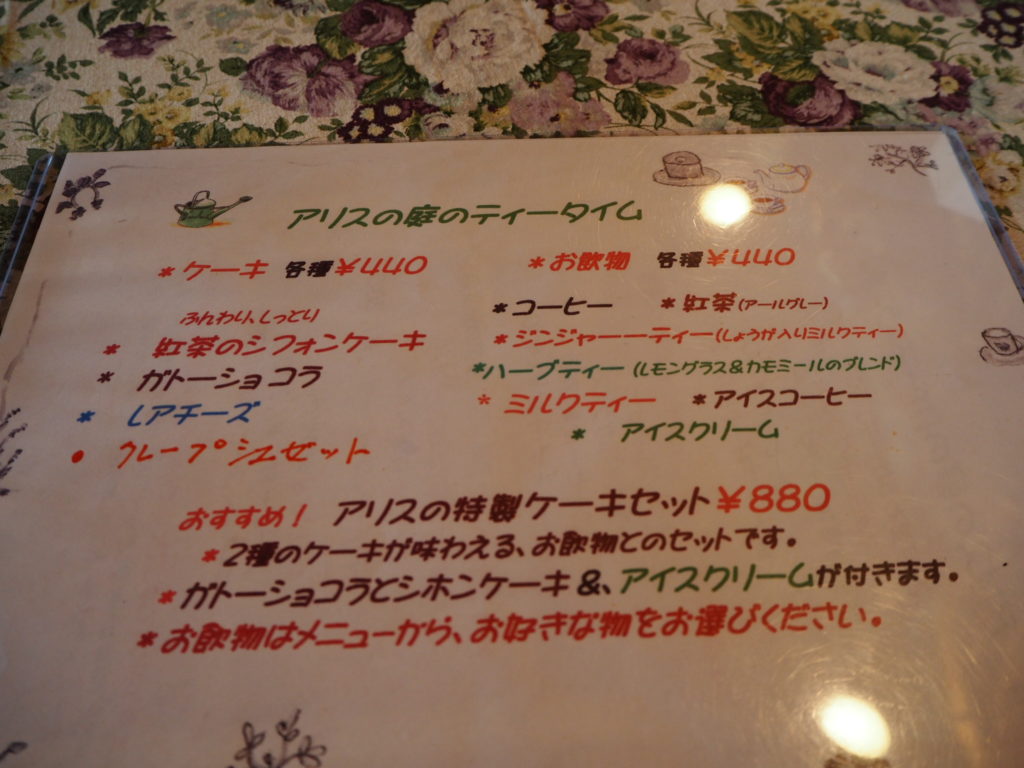 アリスの庭のティータイム
*ケーキ 各種¥440
ふんわり、しっとり
* 紅茶のシフォンケーキ
* ガトーショコラ
* レアチーズ
• クレープシュゼット
*お飲物 各種¥440
*コーヒー *紅茶(アールグレー)
*ジンジャーーティー(しょうが入りミルクティー)
*ハーブティー (レモングラス&カモミールのブレンド)
* ミルクティー *アイスコーヒー
* アイスクリーム
おすすめ! アリスの特製ケーキセット¥880
*2種のケーキが味わえる、お飲物とのセットです。
*ガトーショコラとシホンケーキ&、アイスクリームが付きます。
*お飲物はメニューから、お好きな物をお選びください。